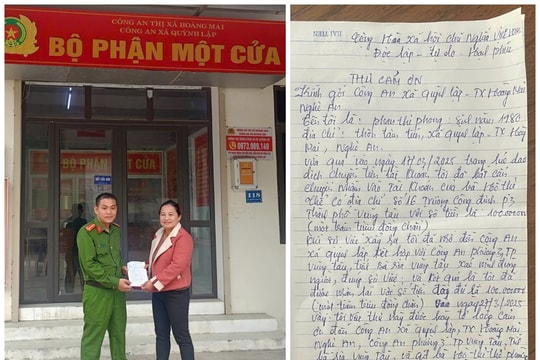 CÔNG AN THỊ XÃ HOÀNG MAI
CÔNG AN XÃ QUỲNH LẬP
BỘ PHẬN MỘT CỬA
BỘ PHẬN MỘT CỬA
0973.009.149
118
Cộng Hòa xã hội chủ Nghĩa Việt Nam
Độc lập - tự do - Hạnh phúc
THƯ CẢM ƠN
Kính gửi Công An xã quỳnh lập - TX Hoàng Mai
Nghệ An
Tên tôi là: phan thị phòng: sinh năm 1980
địa chỉ: thôn tân tiến, xã quỳnh lập - TX Hoàng
Mai, Nghệ An.
vừa qua vào ngày 17/03/2025 trong lúc giao
dịch chuyển tiền tài khoản tôi đã bất cẩn
chuyển nhầm vào Tài khoản của bà Hồ thị
có địa chỉ số 16 Trương Công định p3
Thành phố Vũng tàu với số tiền là 100.000.000
(một trăm triệu đồng chẵn)
khi sự việc xảy ra tôi đã nhờ đến Công An
xã quỳnh lập kết hợp với Công An phường 3, TP
Vũng tàu, tỉnh Bà Rịa Vũng tàu xác minh đúng
người, đúng sự việc và kết quả là tôi đã
được nhận lại với số tiền là 100.000.000
(một trăm triệu đồng chẵn) ngày 27/3/2025
vậy tôi viết thư này được bày tỏ lòng cảm
ơn đến Công An xã Quỳnh lập, TX Hoàng Mai
Nghệ An, Công An phường 3 TP Vũng Tàu, Tỉnh
Bà Rịa Vũng Tàu,